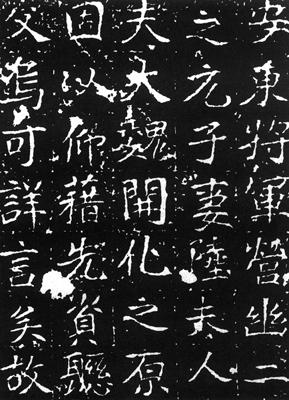 安東將軍營幽二
之元子妻陸夫人
夫大魏開化之原
因以仰藉先資聯
父焉可詳言矣故